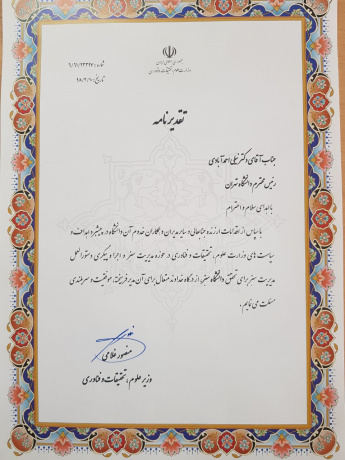 جمهوری اسلامی ایران
وزارت علوم، تحقیقات و فناوری
شماره: ۹/۶/۲۳۳۲۷
تاریخ: ۹۸/۲/۱۰
تقدیرنامه
جناب آقای دکتر نیلی احمدآبادی
رئیس محترم دانشگاه تهران
با اهدای سلام و احترام
با سپاس از اقدامات ارزنده جنابعالی و سایر مدیران و همکاران خدوم آن دانشگاه در پیشبرد اهداف و
سیاست های وزارت علوم، تحقیقات و فناوری در حوزه مدیریت سبز و اجرا و پیگیری دستورالعمل
مدیریت سبز برای تحقق دانشگاه سبز، از درگاه خداوند متعال برای آن مدیر فرهیخته، موفقیت و سربلندی
مسئلت می نمایم.
منصور غلامی
وزیر علوم، تحقیقات و فناوری